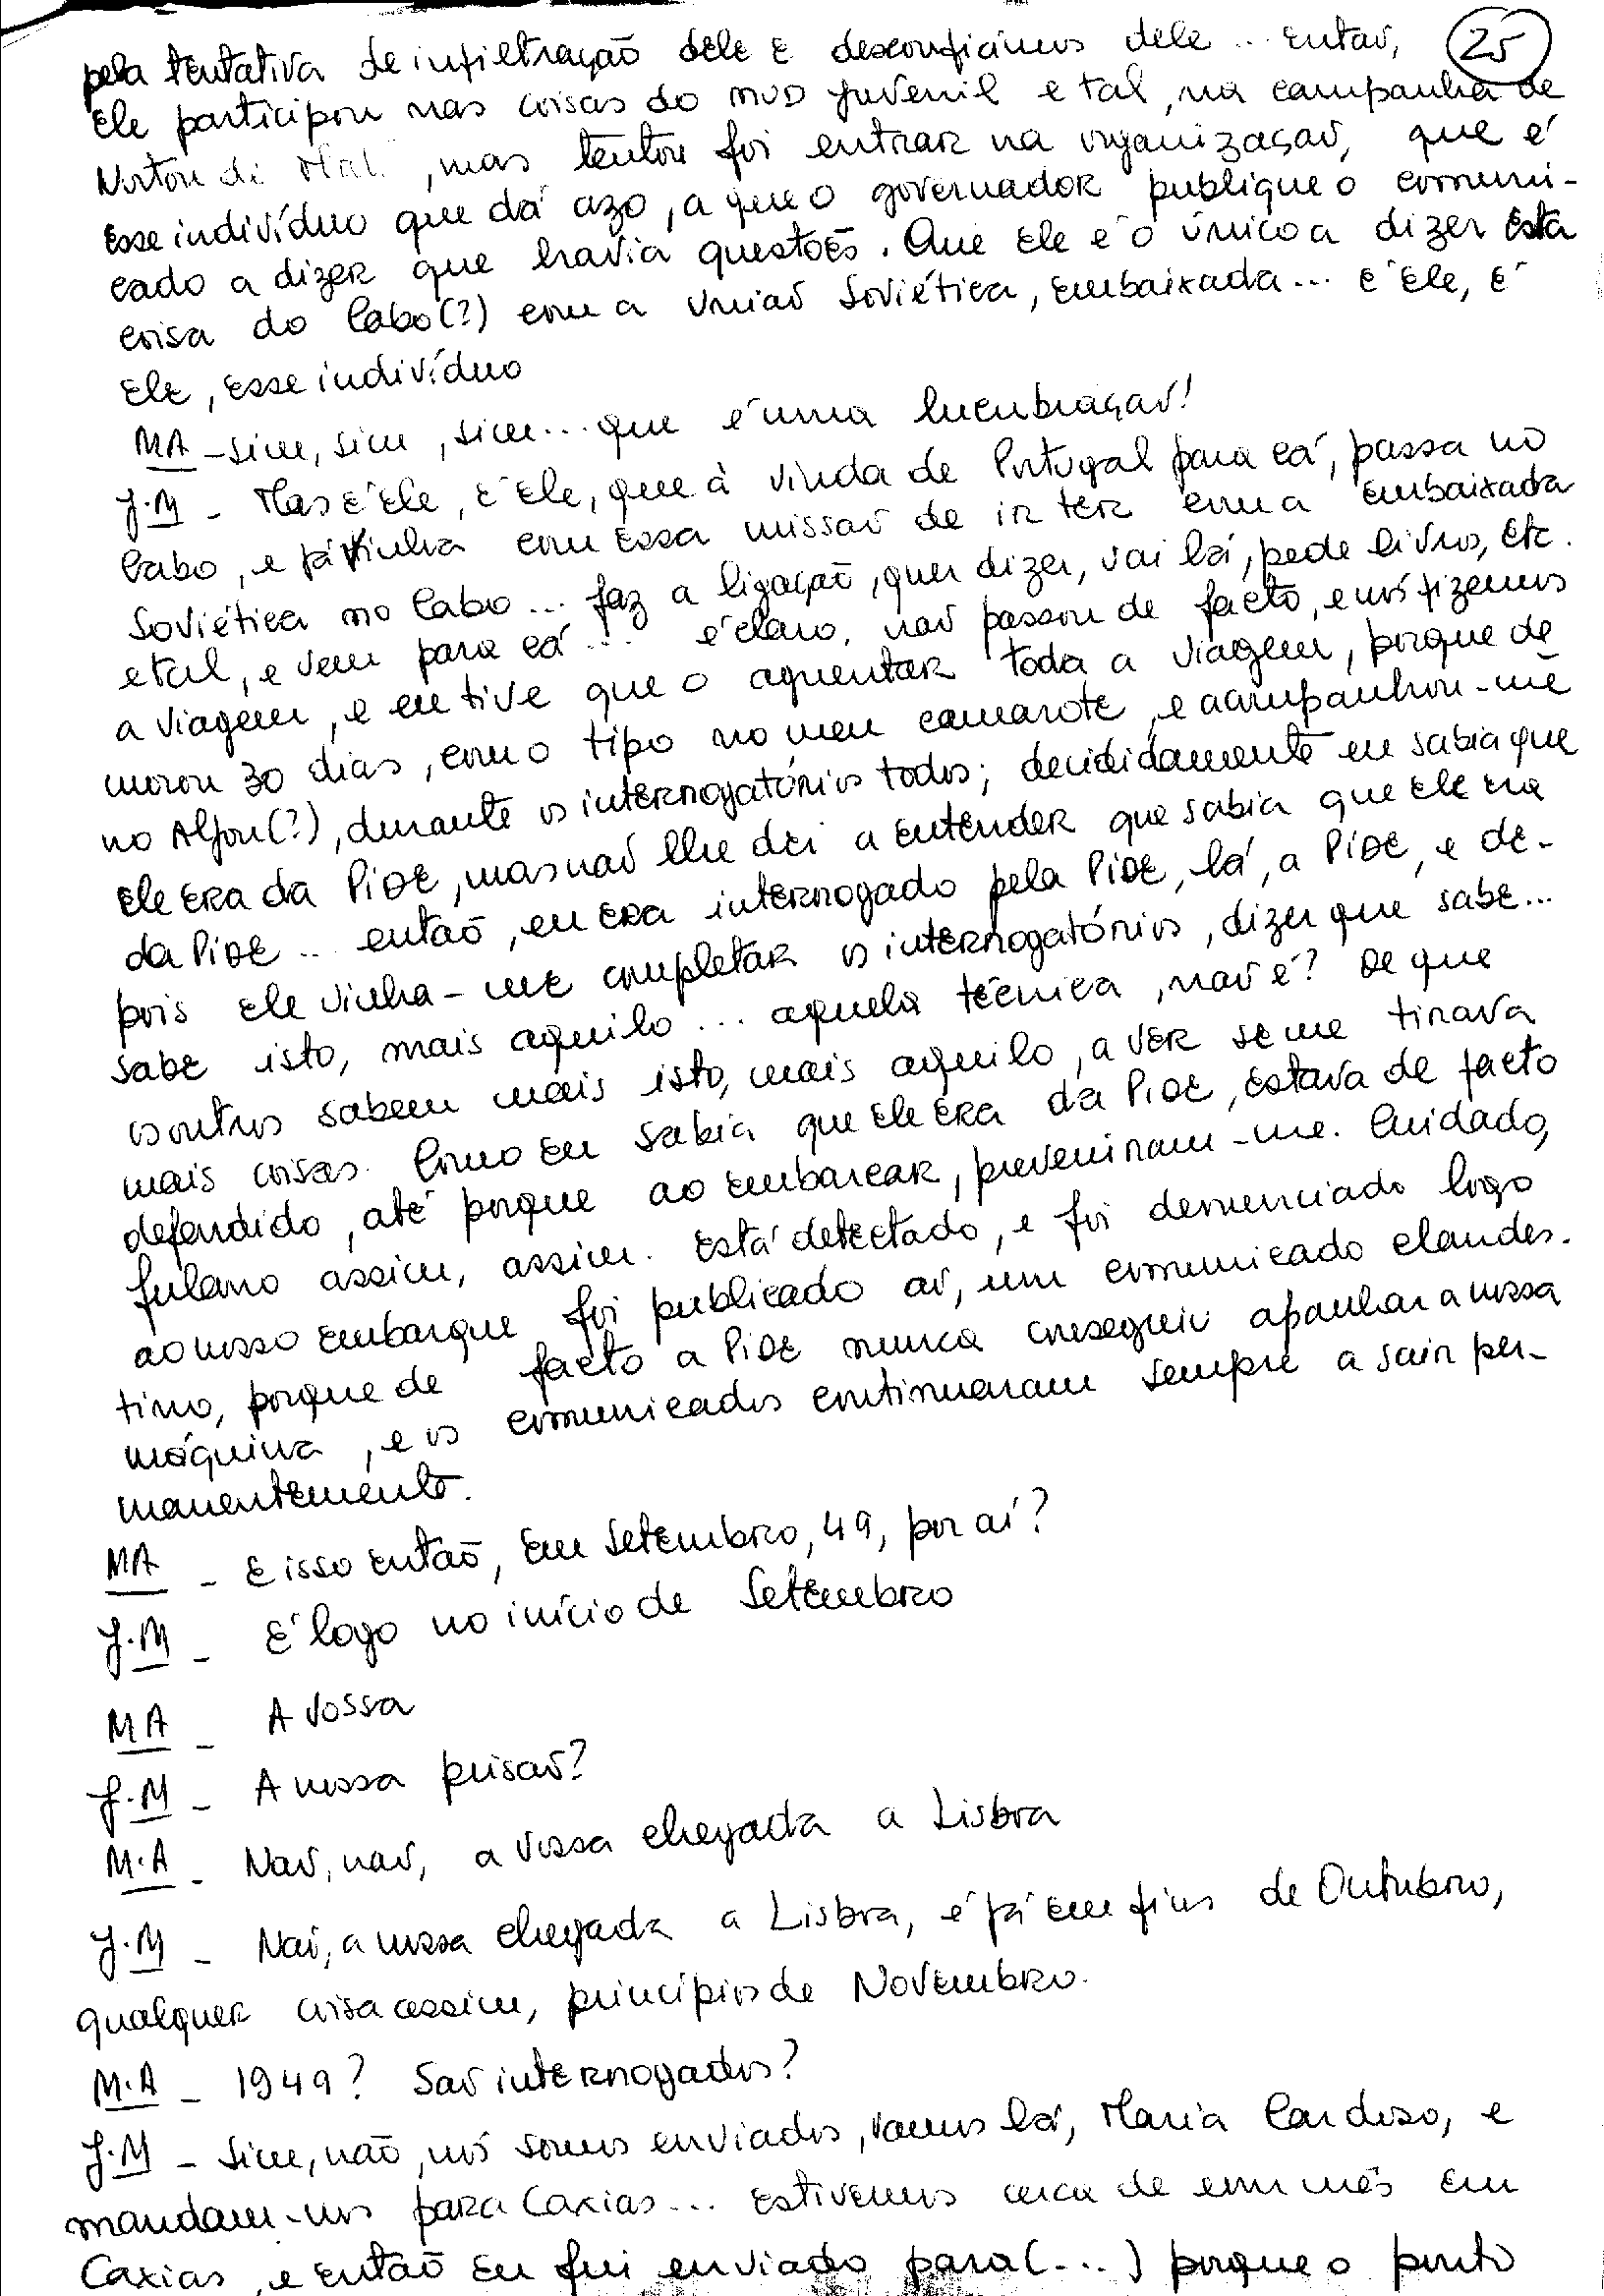 25
pela tentativa de infiltração dele e desconfiámos dele... então,
Ele participou nas coisas do MUD juvenil e tal, na campanha de
Norton de , mas tentou foi entrar na organização, que é
esse indivíduo que dá azo, a que o governador publique o comuni-
cado a dizer que havia questões. Que ele é o único a dizer esta
coisa do Cabo (?) com a União Soviética, embaixada... é ele, é
ele, esse indivíduo
MA - sim, sim, sim... que é uma lucubração!
J.M - Mas é ele, é ele, que à vinda de Portugal para cá, passa no
Cabo, e já vinha com essa missão de ir ter com a embaixada
Soviética no Cabo... faz a ligação, quer dizer, vai lá, pede livros, etc.
e tal, e vem para cá... é claro, não passou de facto, e nós fizemos
a viagem, e eu tive que o aguentar toda a viagem, porque de
morou 30 dias, com o tipo no meu camarote, e acompanhou-me
no Aljou(?), durante os interrogatórios todos; decididamente eu sabia que
ele era da PIDE, mas não lhe dei a entender que sabia que ele era
da PIDE... então, eu era interrogado pela PIDE, lá, a PIDE, e de-
pois ele vinha-me completar os interrogatórios, dizer que sabe...
sabe isto, mais aquilo... aquela técnica, não é? De que
os outros sabem mais isto, mais aquilo, a ver se me tirava
mais coisas. Como eu sabia que ele era da PIDE, estava de facto
defendido, até porque ao embarcar, preveniram-me. Cuidado,
fulano assim, assim. Está detectado, e foi denunciado logo
ao nosso embarque, foi publicado aí, um comunicado clandes-
tino, porque de facto a PIDE nunca conseguiu apanhar a nossa
máquina, e os comunicados continuaram sempre a sair per-
manentemente.
MA - E isso então, em Setembro, 49, por aí?
J.M - É logo no início de Setembro
MA - A vossa
J.M - A nossa prisão?
M.A - Não, não, a vossa chegada a Lisboa
J.M - Não, a nossa chegada a Lisboa, é já em fins de Outubro,
qualquer coisa assim, princípios de Novembro.
M.A - 1949? São interrogados?
J.M - Sim, não, nós somos enviados, vamos lá, Maria Cardoso, e
mandam-nos para Caxias... Estivemos cerca de um mês em
Caxias, e então eu fui enviado para (...) porque o ponto